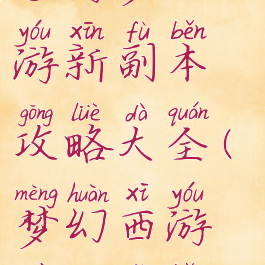 yóu xīn fù běn
游新副本
gōng lüè dà quán
攻略大全(
mèng huàn xī yóu
梦幻西游